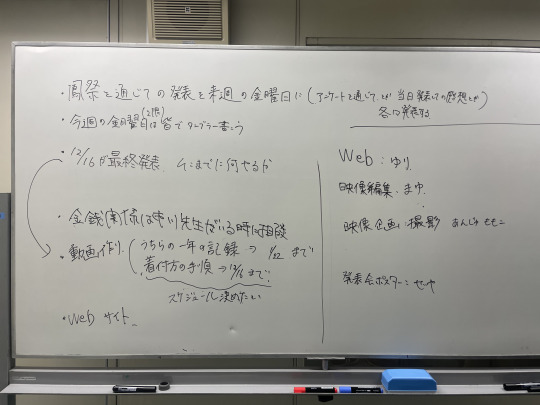 ・鳳祭を通じての発表を来週の金曜日に(アンケートを通じてとか 当日発表しての感想とか)
各自発表する
・今週の金曜日(2限)は皆でタンブラー書こう
・12/16が最終発表 ムにまでに何やるか
・金銭関係は市川先生がいる時に相談
・動画作り (うちらの一年の記録→ 1/22 まで
着付方の手順→12/16まで)
スケジュール決めたい
・Web サイト
Web:ゆり
映像編集:まゆ
映像企画:撮影 あんじゅ ももこ
発表会ポスター:せいや